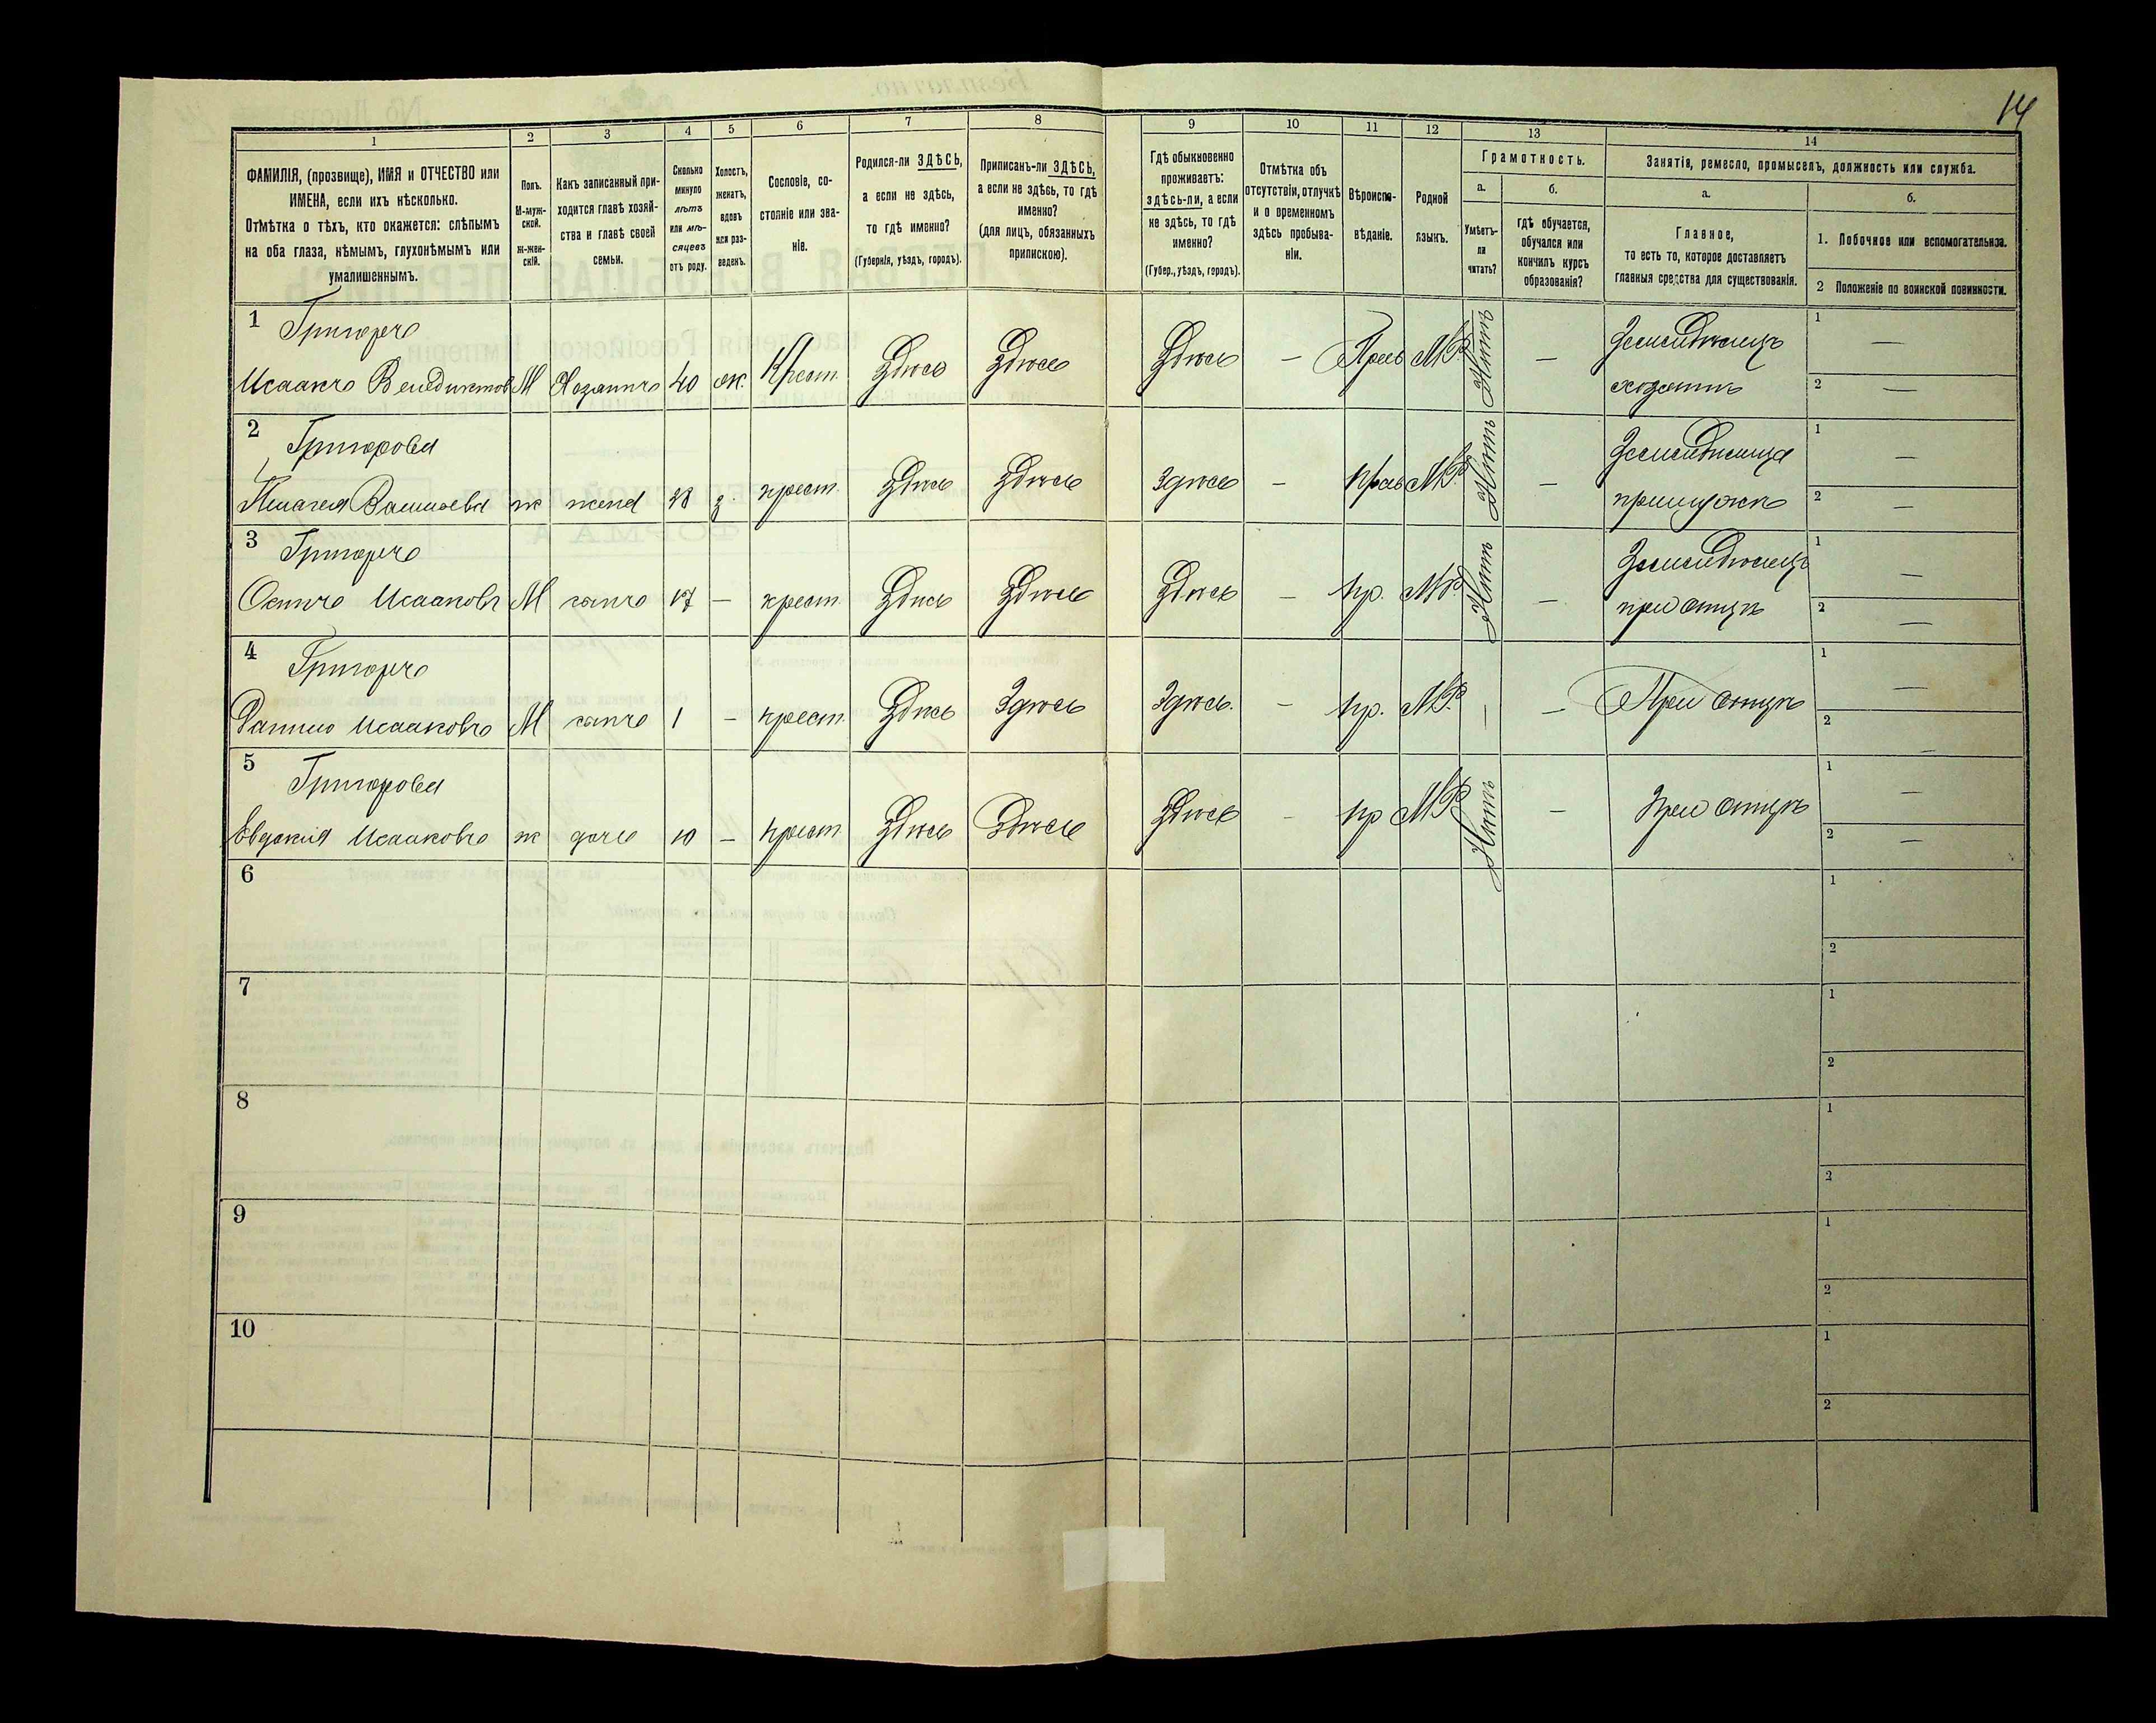 14
1 2 3 4 5 6 7 8 9 10 11 12 13 14
ФАМИЛІЯ, (прозвище), ИМЯ и ОТЧЕСТВО или
ИМЕНА, если ихъ нѣсколько.
Отмѣтка о тѣхъ, кто окажется: слѣпымъ
на оба глаза, нѣмымъ, глухонѣмымъ или
умалишеннымъ.
Полъ.
М-муж-
ской.
Ж-жен-
скій.
Какъ записанный при-
ходится главѣ хозяй-
ства и главѣ своей
семьи.
Сколько
минуло
лѣтъ
или мѣ-
сяцевъ
отъ роду.
Холостъ,
женатъ,
вдовъ
или раз-
веденъ.
Сословіе, со-
стояніе или зва-
ніе.
Родился-ли ЗДѢСЬ,
а если не здѣсь,
то гдѣ именно?
(Губернія, уѣздъ, городъ).
Приписанъ-ли ЗДѢСЬ,
а если не здѣсь, то гдѣ
именно?
(для лицъ, обязанныхъ
припискою).
Гдѣ обыкновенно
проживаетъ:
здѣсь-ли, а если
не здѣсь, то гдѣ
именно?
(Губер., уѣздъ, городъ).
Отмѣтка объ
отсутствіи, отлучкѣ
и о временномъ
здѣсь пребыва-
ніи.
Вѣроиспо-
вѣданіе.
Родной
языкъ.
Грамотность.
а.
Умѣетъ-
ли
читать?
б.
гдѣ обучается,
обучался или
кончилъ курсъ
образованія?
Занятія, ремесло, промыселъ, должность или служба.
а.
Главное,
то есть то, которое доставляетъ
главныя средства для существованія.
б.
1. Побочное или вспомогательное.
2 Положеніе по воинской повинности.
1 Григоръ Земледѣлецъ 1 —
Исаакъ Венедиктовъ М Хозяинъ 40 ж. Крест. Здѣсь Здѣсь Здѣсь — Прав М.Р. Нѣтъ — хозяинъ 2 —
2 Григорова Земледѣлица 1 —
Василіева ж жена 38 з. крест. Здѣсь Здѣсь Здѣсь — Прав М.Р. Нѣтъ — при мужѣ 2 —
3 Григоръ Земледѣлецъ 1 —
Осипъ Исааковъ М сынъ 17 — крест. Здѣсь Здѣсь Здѣсь — пр. М.Р. Нѣтъ — при отцѣ 2 —
4 Григоръ 1 —
Исааковъ М сынъ 1 — крест. Здѣсь Здѣсь Здѣсь. — пр. М.Р. — — При отцѣ 2 —
5 Григорова 1 —
Евдокия Исааковъ ж дочь 10 — крест. Здѣсь Здѣсь Здѣсь — пр М.Р. Нѣтъ — при отцѣ 2 —
6 1
2
7 1
2
8 1
2
9 1
2
10 1
2